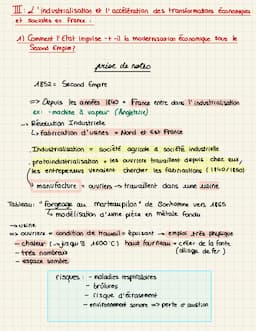 III: L'industrialisation et l'accélération des transformations économiques
et sociales en France :
1) Comment l'État impulse-t-il la modernisation économique sous le
Second Empire?
prise de notes
1852 = Second Empire
=> Depuis les années 1840 + France entre dans l'industrialisation
ex: -machine à vapeur (Angleterre)
→ Révolution Industrielle
↳ fabrication d'usines = Nord et Est France
Industrialisation = société agricole à société industrielle
protoindustrialisation = les ouvriers travaillent depuis chez eux,
les entrepreneurs venaient chercher les fabrications (1740/1850)
↳ manufacture = ouvriers → travaillent dans une usine
Tableau: "Forgeage au marteau pilon" de Bonhommé vers 1865
↳ modélisation d'une pièce en métale fondu
→ usine
=> ouvriers = condition de travail = épuisant → emploi très physique
- chaleur (→ jusqu'à 1600°C) haut fourneau = créer de la fonte
- très nombreux (alliage de fer)
- espace sombre
risques: - maladies respiratoires
- brûlures
- risque d'écrasement
- environnement sonore => perte d'audition